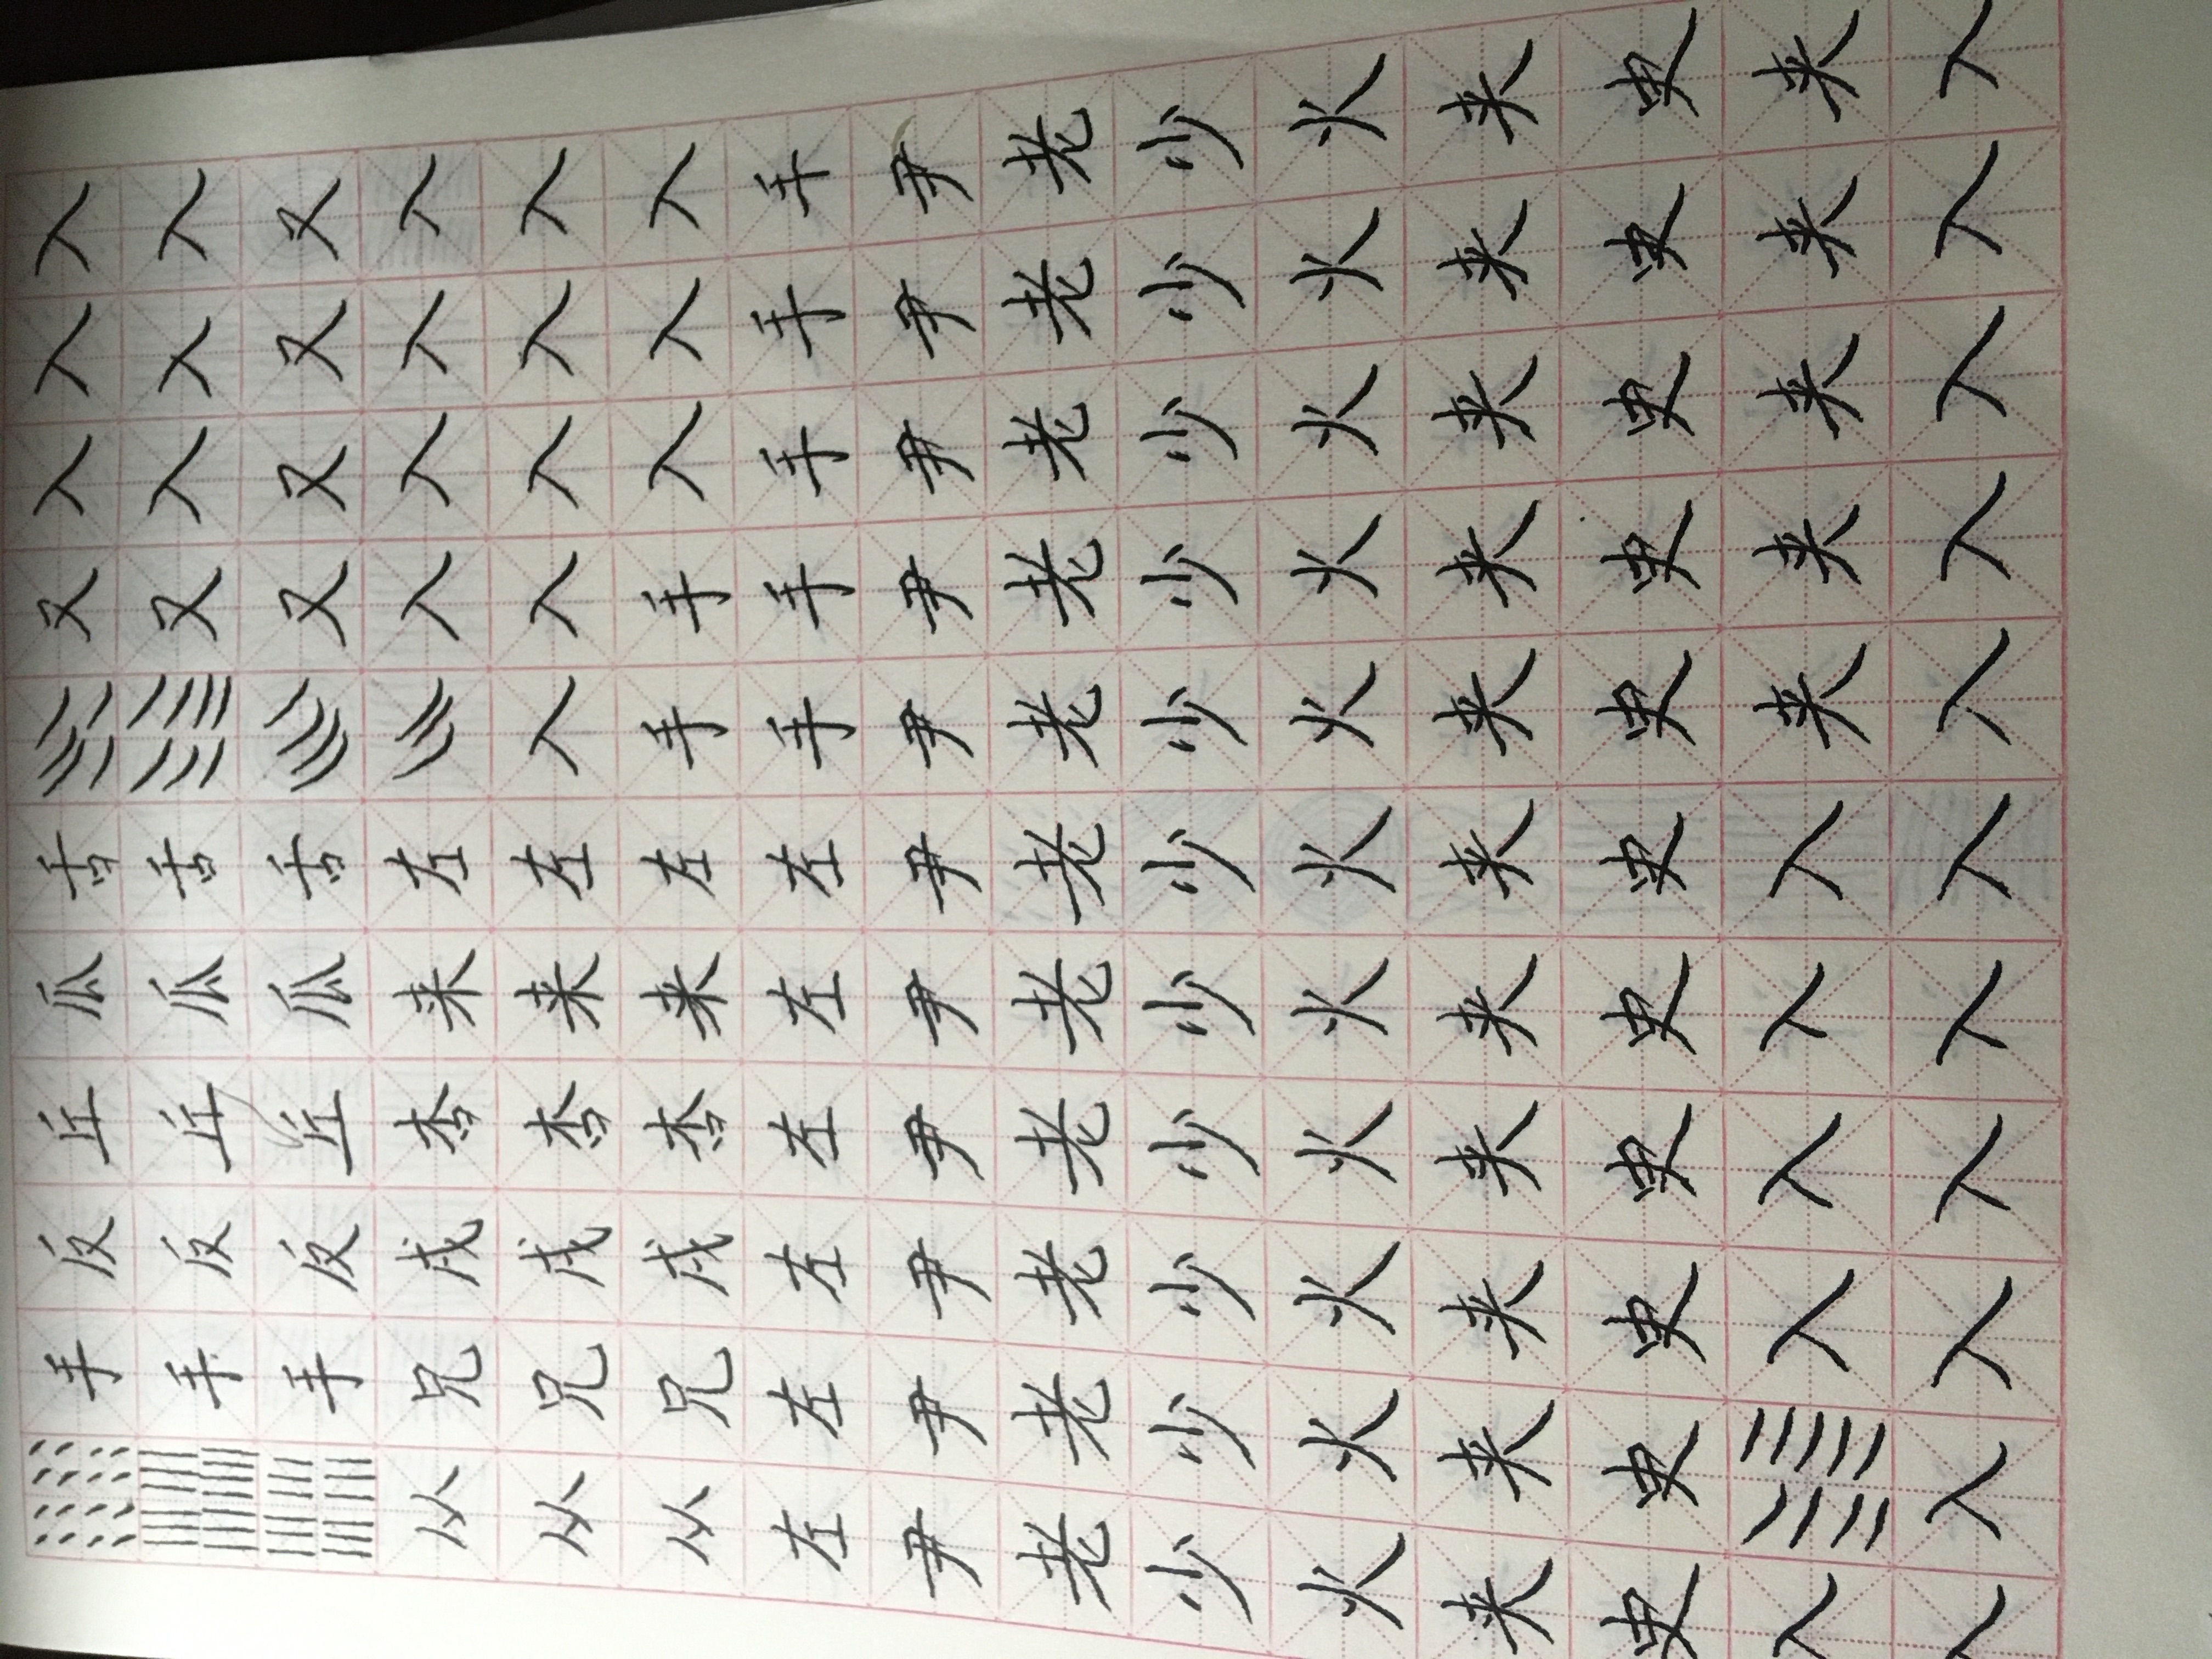 手反丘瓜舌又入入入
手反丘瓜舌又入入入
手反丘瓜舌又又又又
从兄戍杏来左入入入入
从兄戍杏来左入入入入入
从兄戍杏来左手手入入入
左左左左左左手手手手手
尹尹尹尹尹尹尹尹尹尹尹
老老老老老老老老老老老
少少少少少少少少少少少
火火火火火火火火火火火
夹夹夹夹夹夹夹夹夹夹夹
史史史史史史史史史史史
入入入入入夹夹夹夹夹
入入入入入入入入入入入